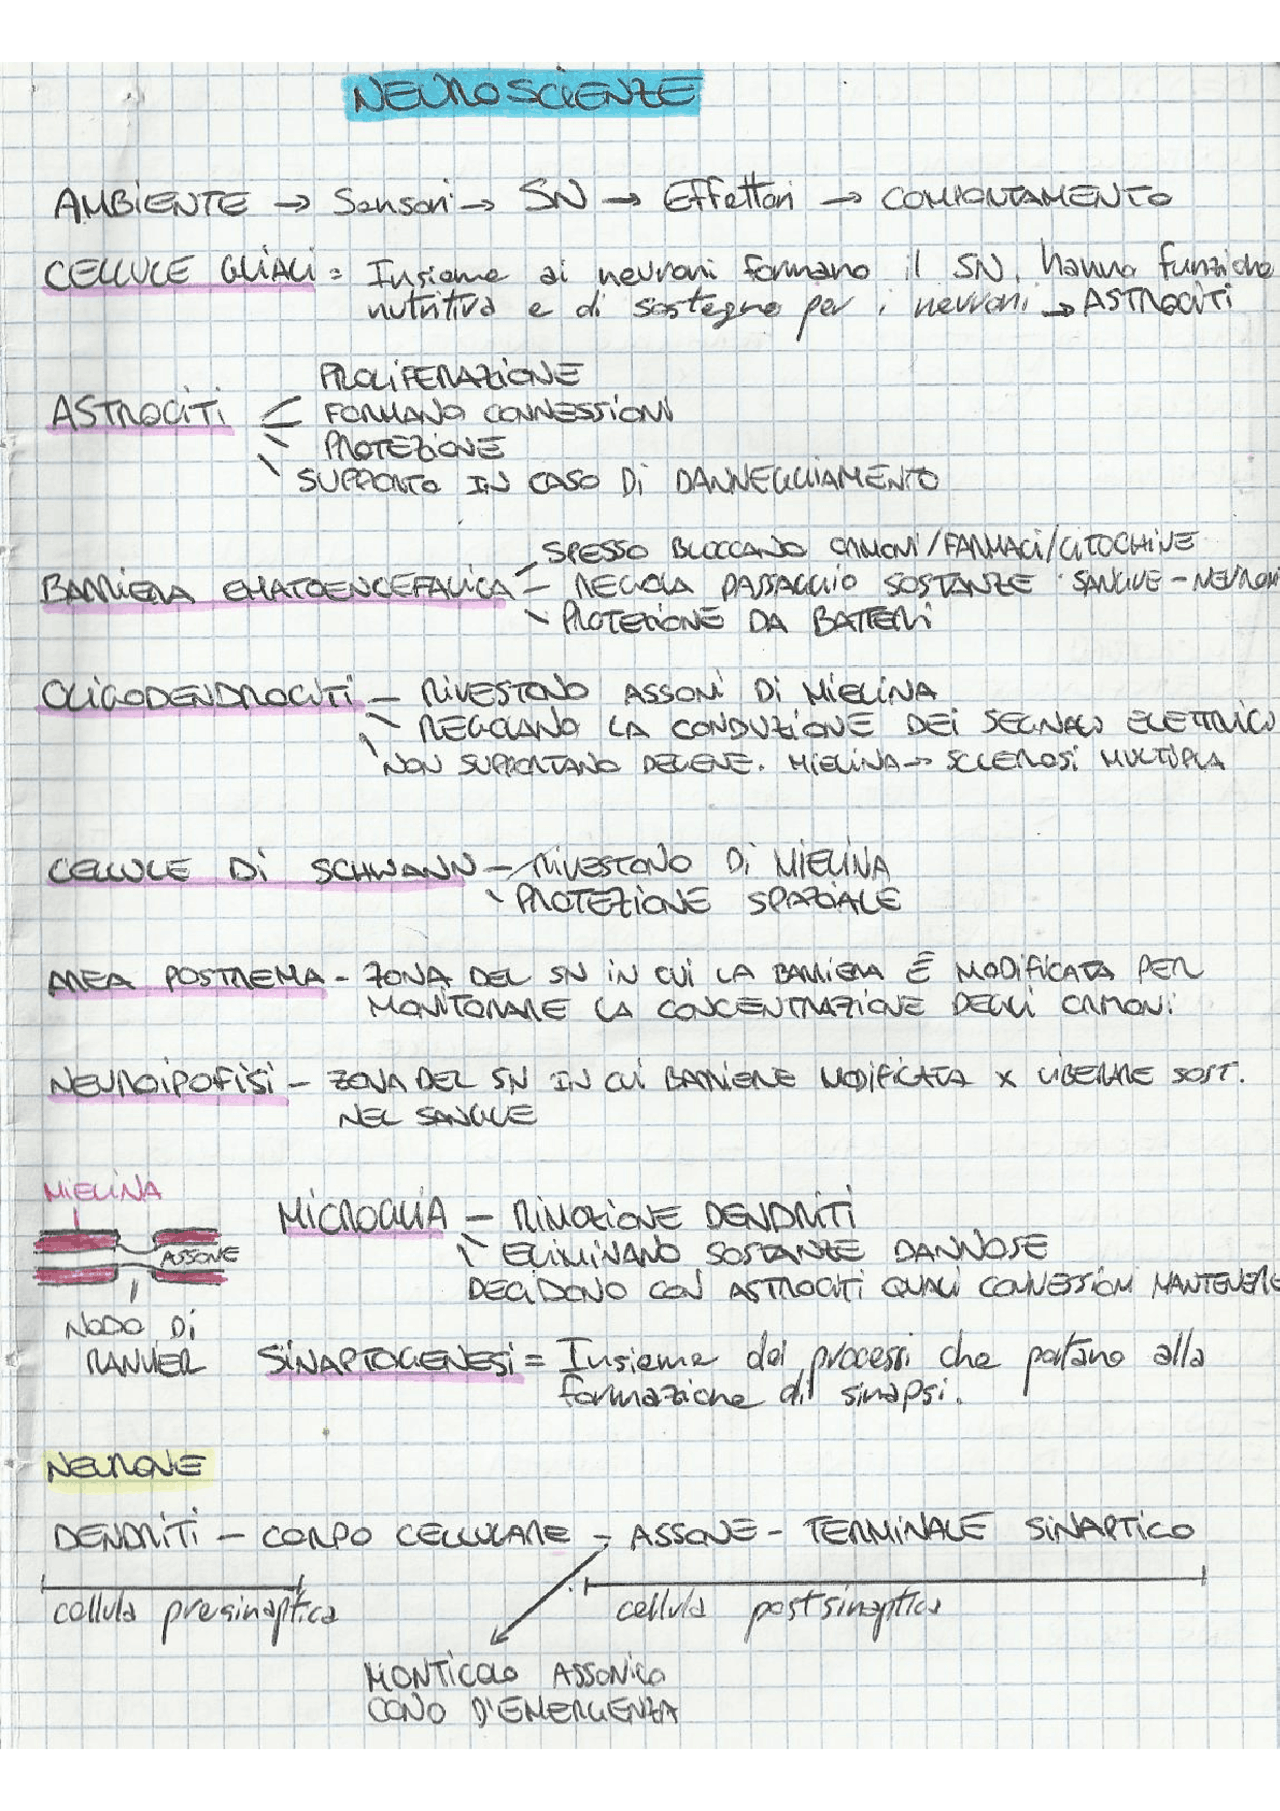 NEUROSCIENZE
AMBIENTE → Sensori → SN → Effettori → COMPORTAMENTO
CELLULE GLIALI = Insieme ai neuroni formano il SN, hanno funzione
nutritiva e di sostegno per i neuroni → ASTROCITI
PROLIFERAZIONE
ASTROCITI FORMANO CONNESSIONI
PROTEZIONE
SUPPORTO IN CASO DI DANNEGGIAMENTO
SPESSO BLOCCANO ORMONI/FARMACI/CITOCHINE
BARRIERA EMATOENCEFALICA - REGOLA PASSAGGIO SOSTANZE SANGUE-NEURONI
PROTEZIONE DA BATTERI
OLIGODENDROCITI - RIVESTONO ASSONI DI MIELINA
REGOLANO LA CONDUZIONE DEI SEGNALI ELETTRICI
NON SUPPORTANO DEGENE. MIELINA → SCLEROSI MULTIPLA
CELLULE DI SCHWANN - RIVESTONO DI MIELINA
PROTEZIONE SPAZIALE
AREA POSTREMA - ZONA DEL SN IN CUI LA BARRIERA È MODIFICATA PER
MONITORARE LA CONCENTRAZIONE DEGLI ORMONI
NEUROIPOFISI - ZONA DEL SN IN CUI BARRIERE MODIFICATA X LIBERARE SOST.
NEL SANGUE
MIELINA
ASSONE
NODO DI
RANVIER
MICROGLIA - RIMOZIONE DENDRITI
ELIMINANO SOSTANZE DANNOSE
DECIDONO CON ASTROCITI QUALI CONNESSIONI MANTENERE
SINAPTOGENESI = Insieme dei processi che portano alla
formazione di sinapsi.
NEURONE
DENDRITI - CORPO CELLULARE - ASSONE - TERMINALE SINAPTICO
cellula presinaptica cellula postsinaptica
MONTICOLO ASSONICO
CONO D'EMERGENZA